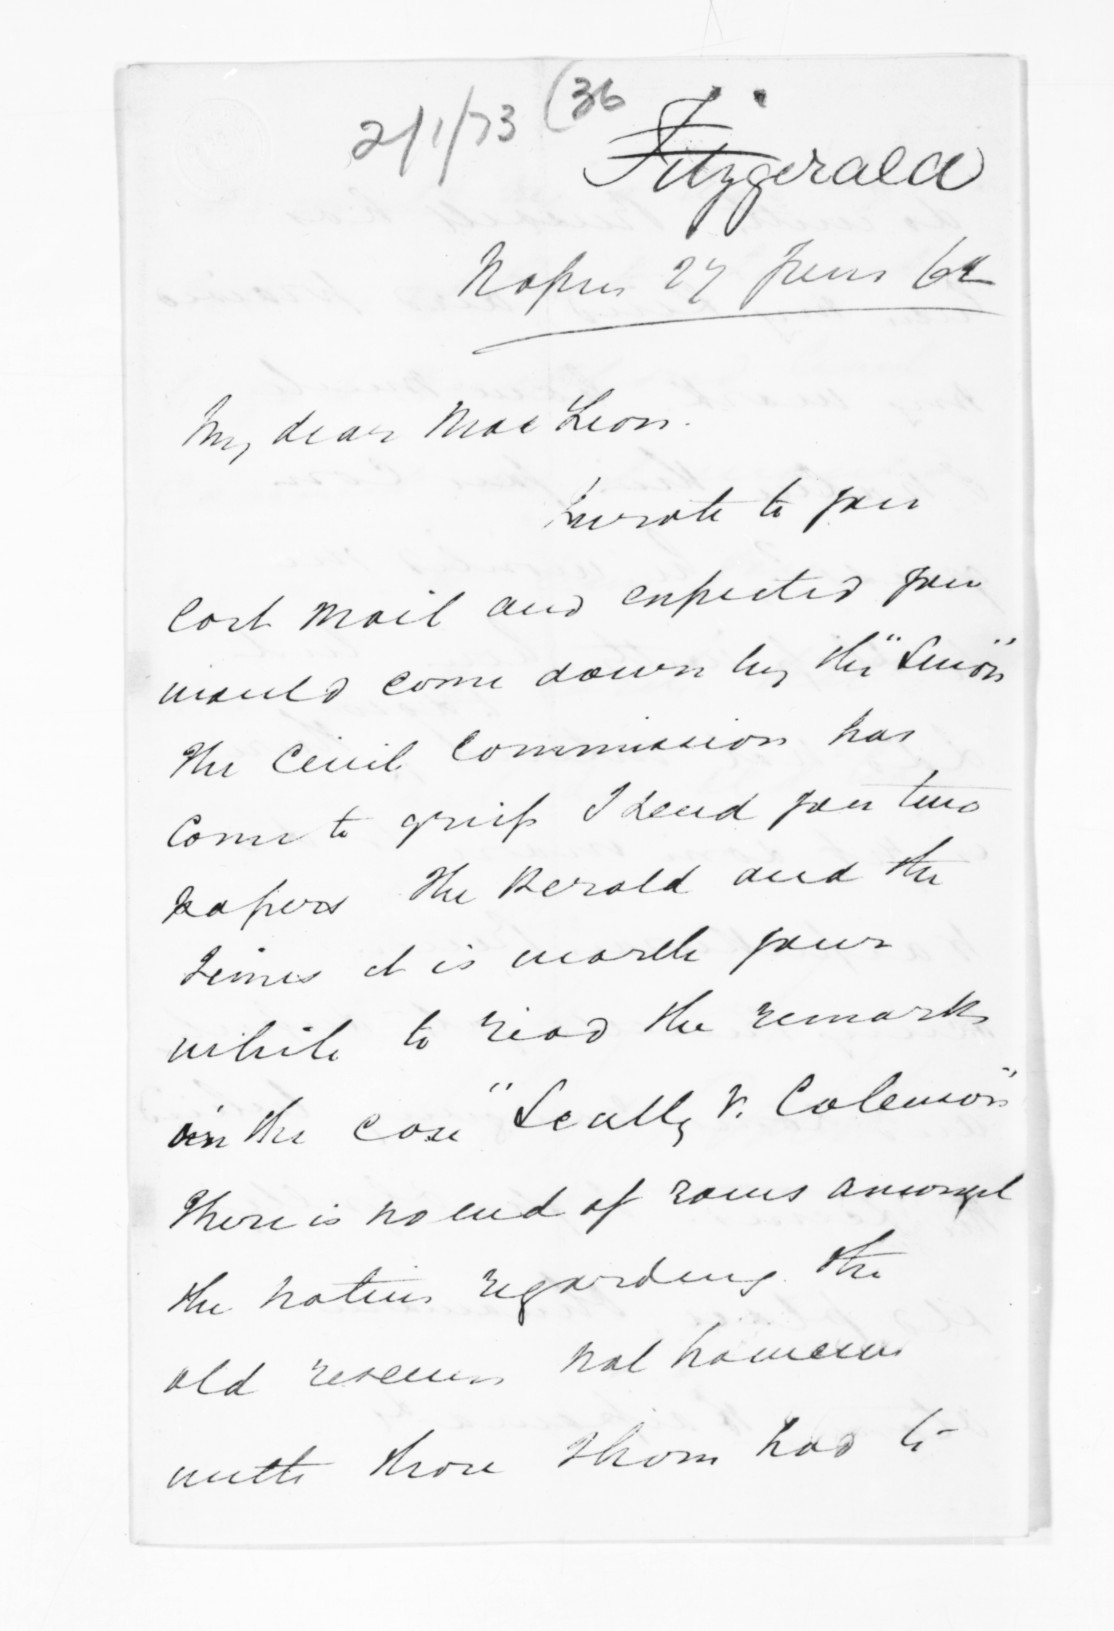 2/1/73 (36
Fitzgerald
Napier 27 June 62
My dear MacLean.
I wrote to you
last mail and expected you
would come down by the "Lurion"
The Civil Commission has
Come to grief I send you two
papers the Herald and the
Times it is worth your
while to read the remarks
in the case "Scully v. Colenson"
There is no end of rows amongst
the natives regarding the
old reserves not however
with those Thom had to